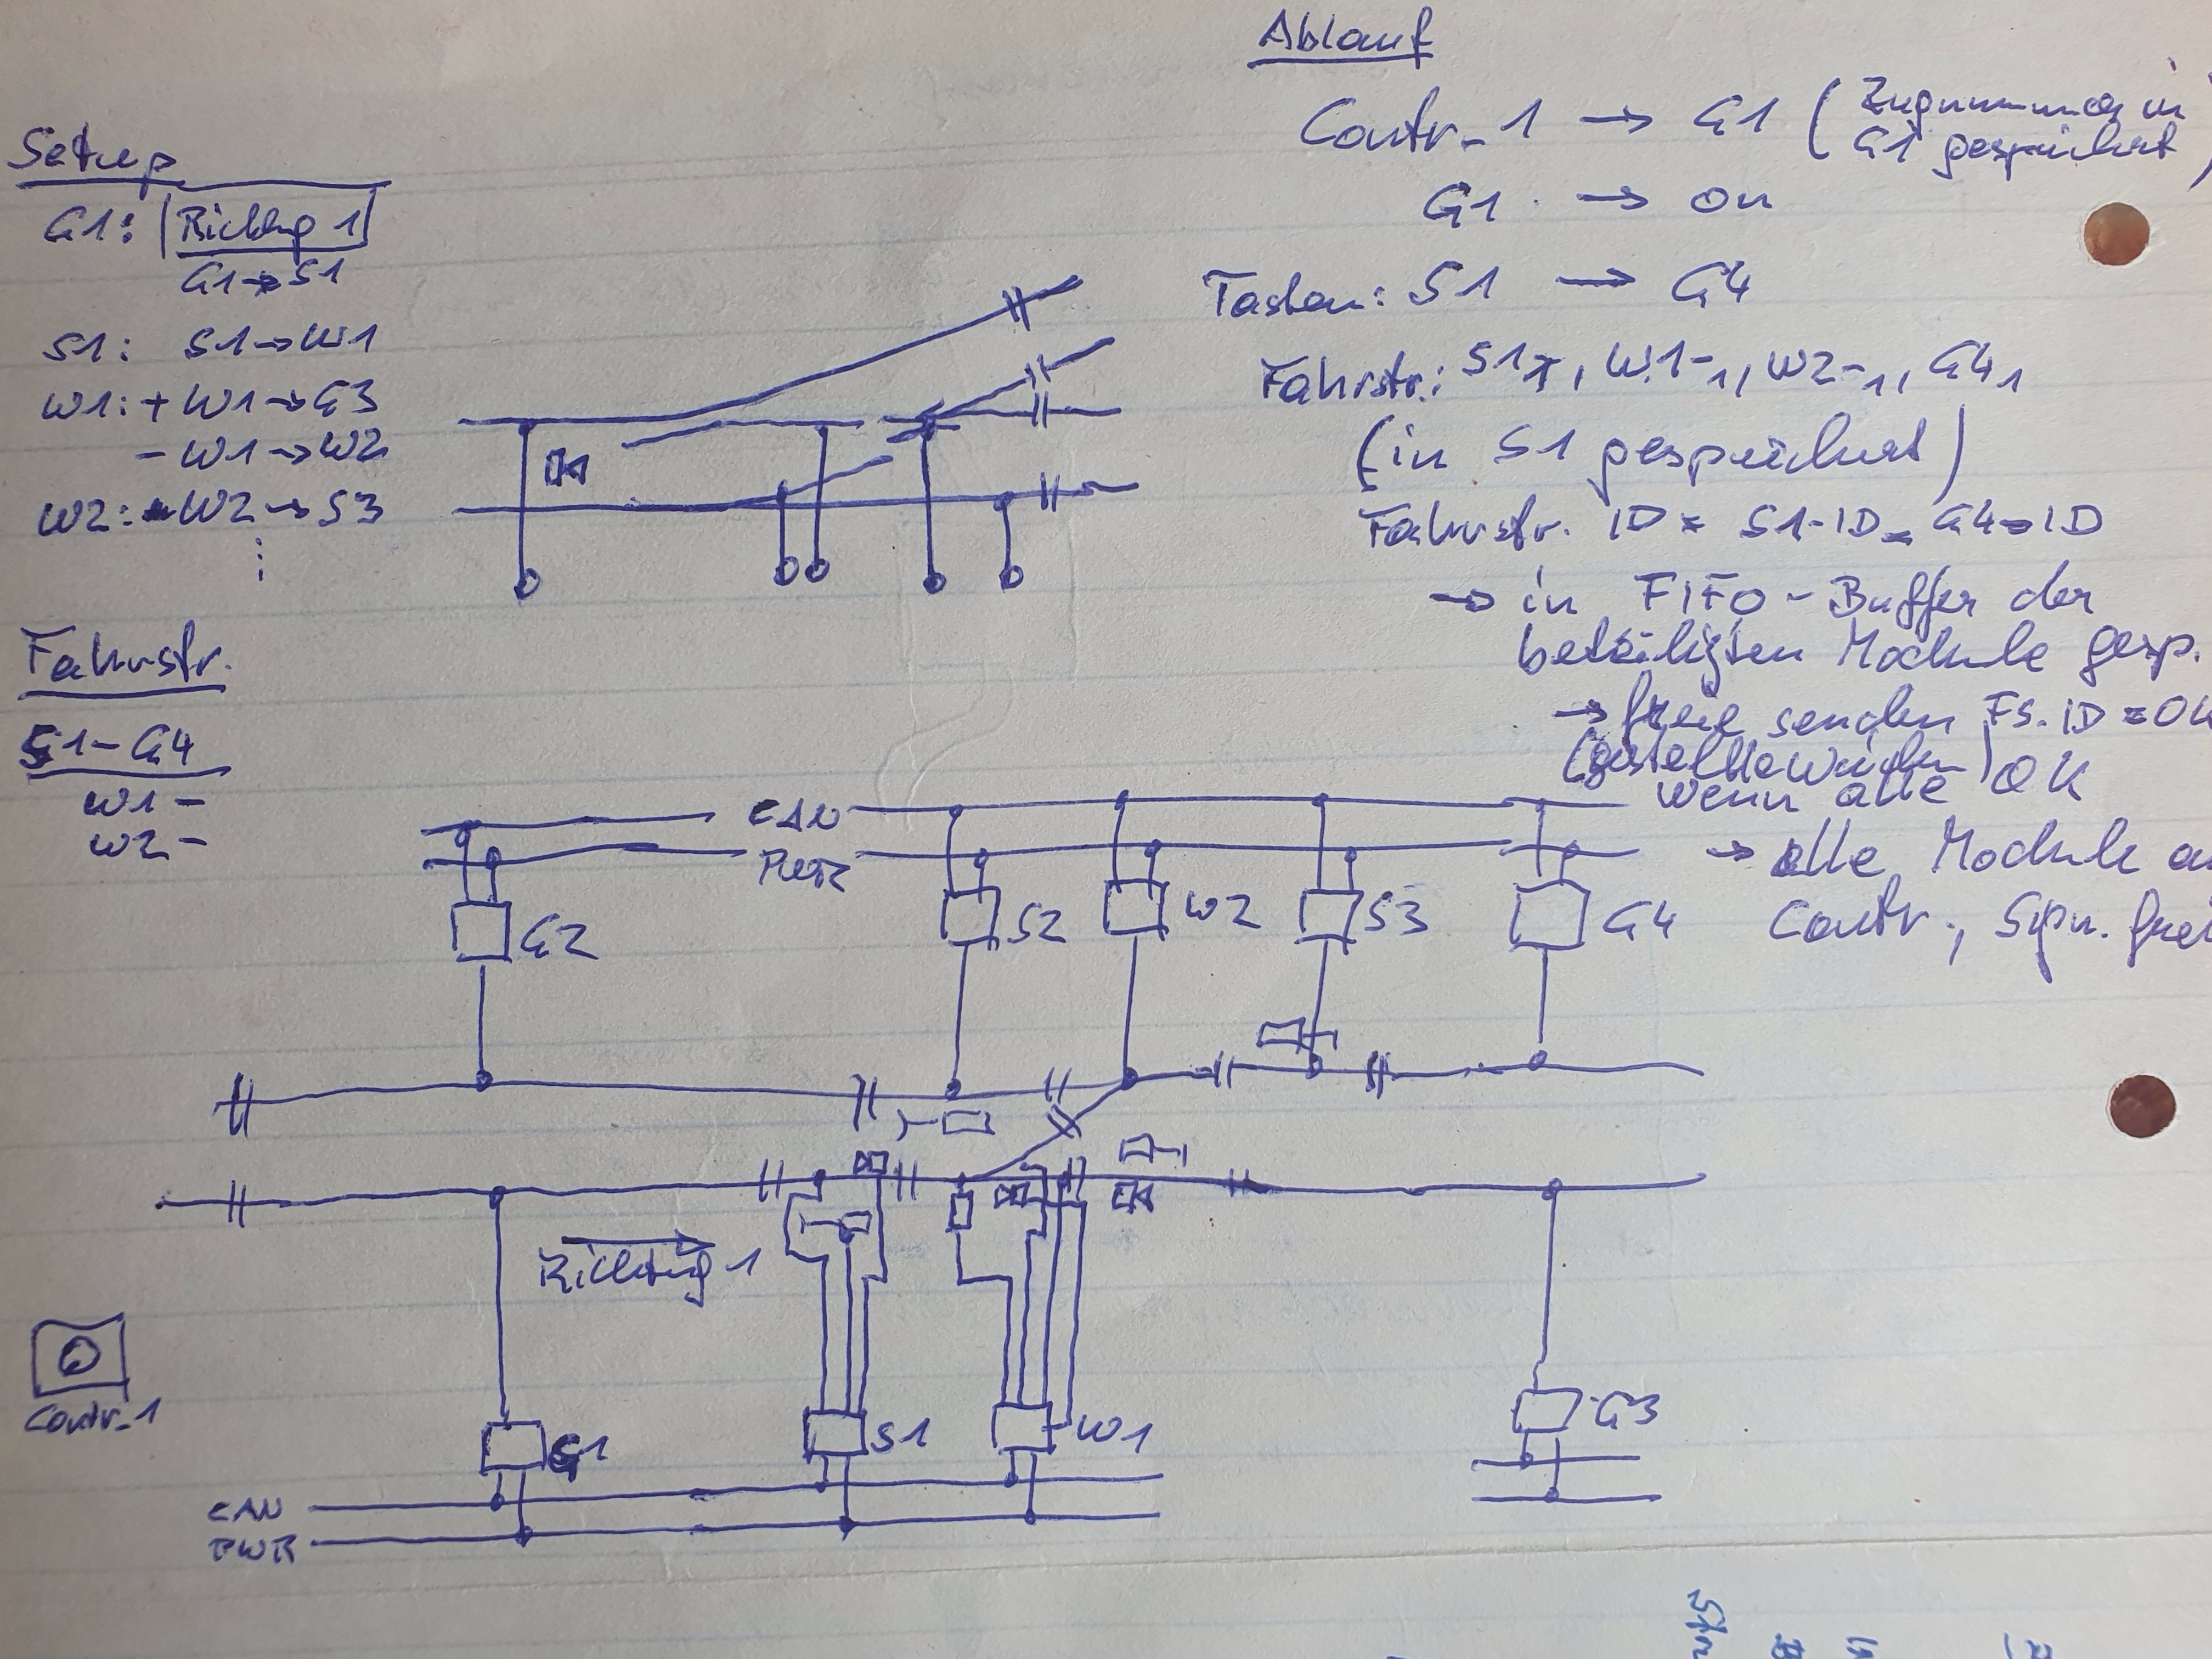 Setup
G1: Richtg 1
G1→S1
S1: S1→W1
W1: + W1→G3
- W1→W2
W2: - W2→S3
⋮
Fahrstr.
S1-G4
W1 -
W2 -
Ablauf
Contr_1 → G1 (Zugnummer in
G1 gespeichert)
G1 → on
Tasten: S1 → G4
Fahrstr.: S1, W1-1, W2-1, G41
(in S1 gespeichert)
Fahrstr. ID = S1-ID_G4-ID
→ in FIFO-Buffer der
beteiligten Module gesp.
→ freie senden FS.ID=OK
(gestellte Weichen)
wenn alle OK
→ alle Module
Contr.,
CAN
PWR
G2
S2
W2
S3
G4
Richtung 1
Contr_1
G1
S1
W1
G3
CAN
PWR